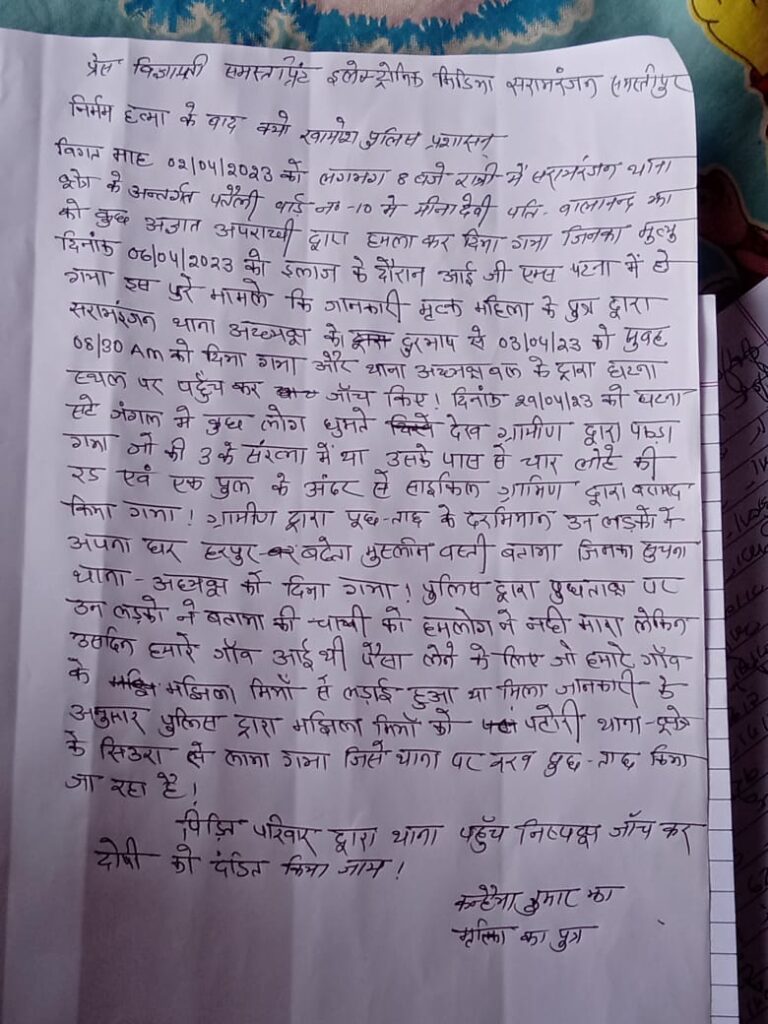 प्रेस विज्ञाप्ती समस्त प्रिंट इलेक्ट्रोनिक मिडिया सरायरंजन समस्तीपुर
निर्मम हत्या के बाद क्यों खामोश पुलिस प्रशासन्
विगत माह 02/04/2023 को लगभग 8 बजे रात्री में सरायरंजन थाना
क्षेत्र के अन्तर्गत पतैली वार्ड नं०-10 मे मीना देवी पति- बालानन्द झा
को कुछ अज्ञात अपराधी द्वारा हमला कर दिया गया जिनका मृत्यु
दिनांक 06/04/2023 को इलाज के दौरान आई जी एम्स पटना में हो
गया इस पुरे मामले कि जानकारी मृतक महिला के पुत्र द्वारा
सरायरंजन थाना अध्यक्ष को दुरभाष से 03/04/23 को सुवह
08/30 Am को दिया गया और थाना अध्यक्ष दल के द्वारा घटना
स्थल पर पहुँच कर जाँच किए! दिनांक 29/04/23 को घटना
सटे जंगल मे कुछ लोग घुमते देख ग्रामीण द्वारा पकड़ा
गया जो की 3 के संख्या में था उसके पास से चार लोहे की
रड एवं एक पुल के अंदर से साइकिल ग्रामिण द्वारा बरामद
किया गया! ग्रामीण द्वारा पूछ-ताछ के दरमियान उन लड़को ने
अपना घर हरपुर बरहेता मुस्लीम वस्ती बताया जिनका सुचना
थाना-अध्यक्ष को दिया गया! पुलिस द्वारा पुछताछ पर
उन लड़को ने बताया की चाची को हमलोग ने नही मारा लेकिन
उसदिन हमारे गाँव आई थी पैसा लेने के लिए जो हमारे गाँव
के मझिला मियाँ से लड़ाई हुआ था मिला जानकारी के
अनुसार पुलिस द्वारा मझिला मियाँ को पटोरी थाना-क्षेत्र
के सिउरा से लाया गया जिसे थाना पर रख पुछ-ताछ किया
जा रहा है!
पिड़ित परिवार द्वारा थाना पहुँच निष्पक्ष जाँच कर
दोषी को दंडित किया जाय!
कन्हैया कुमार झा
मृतिका का पुत्र